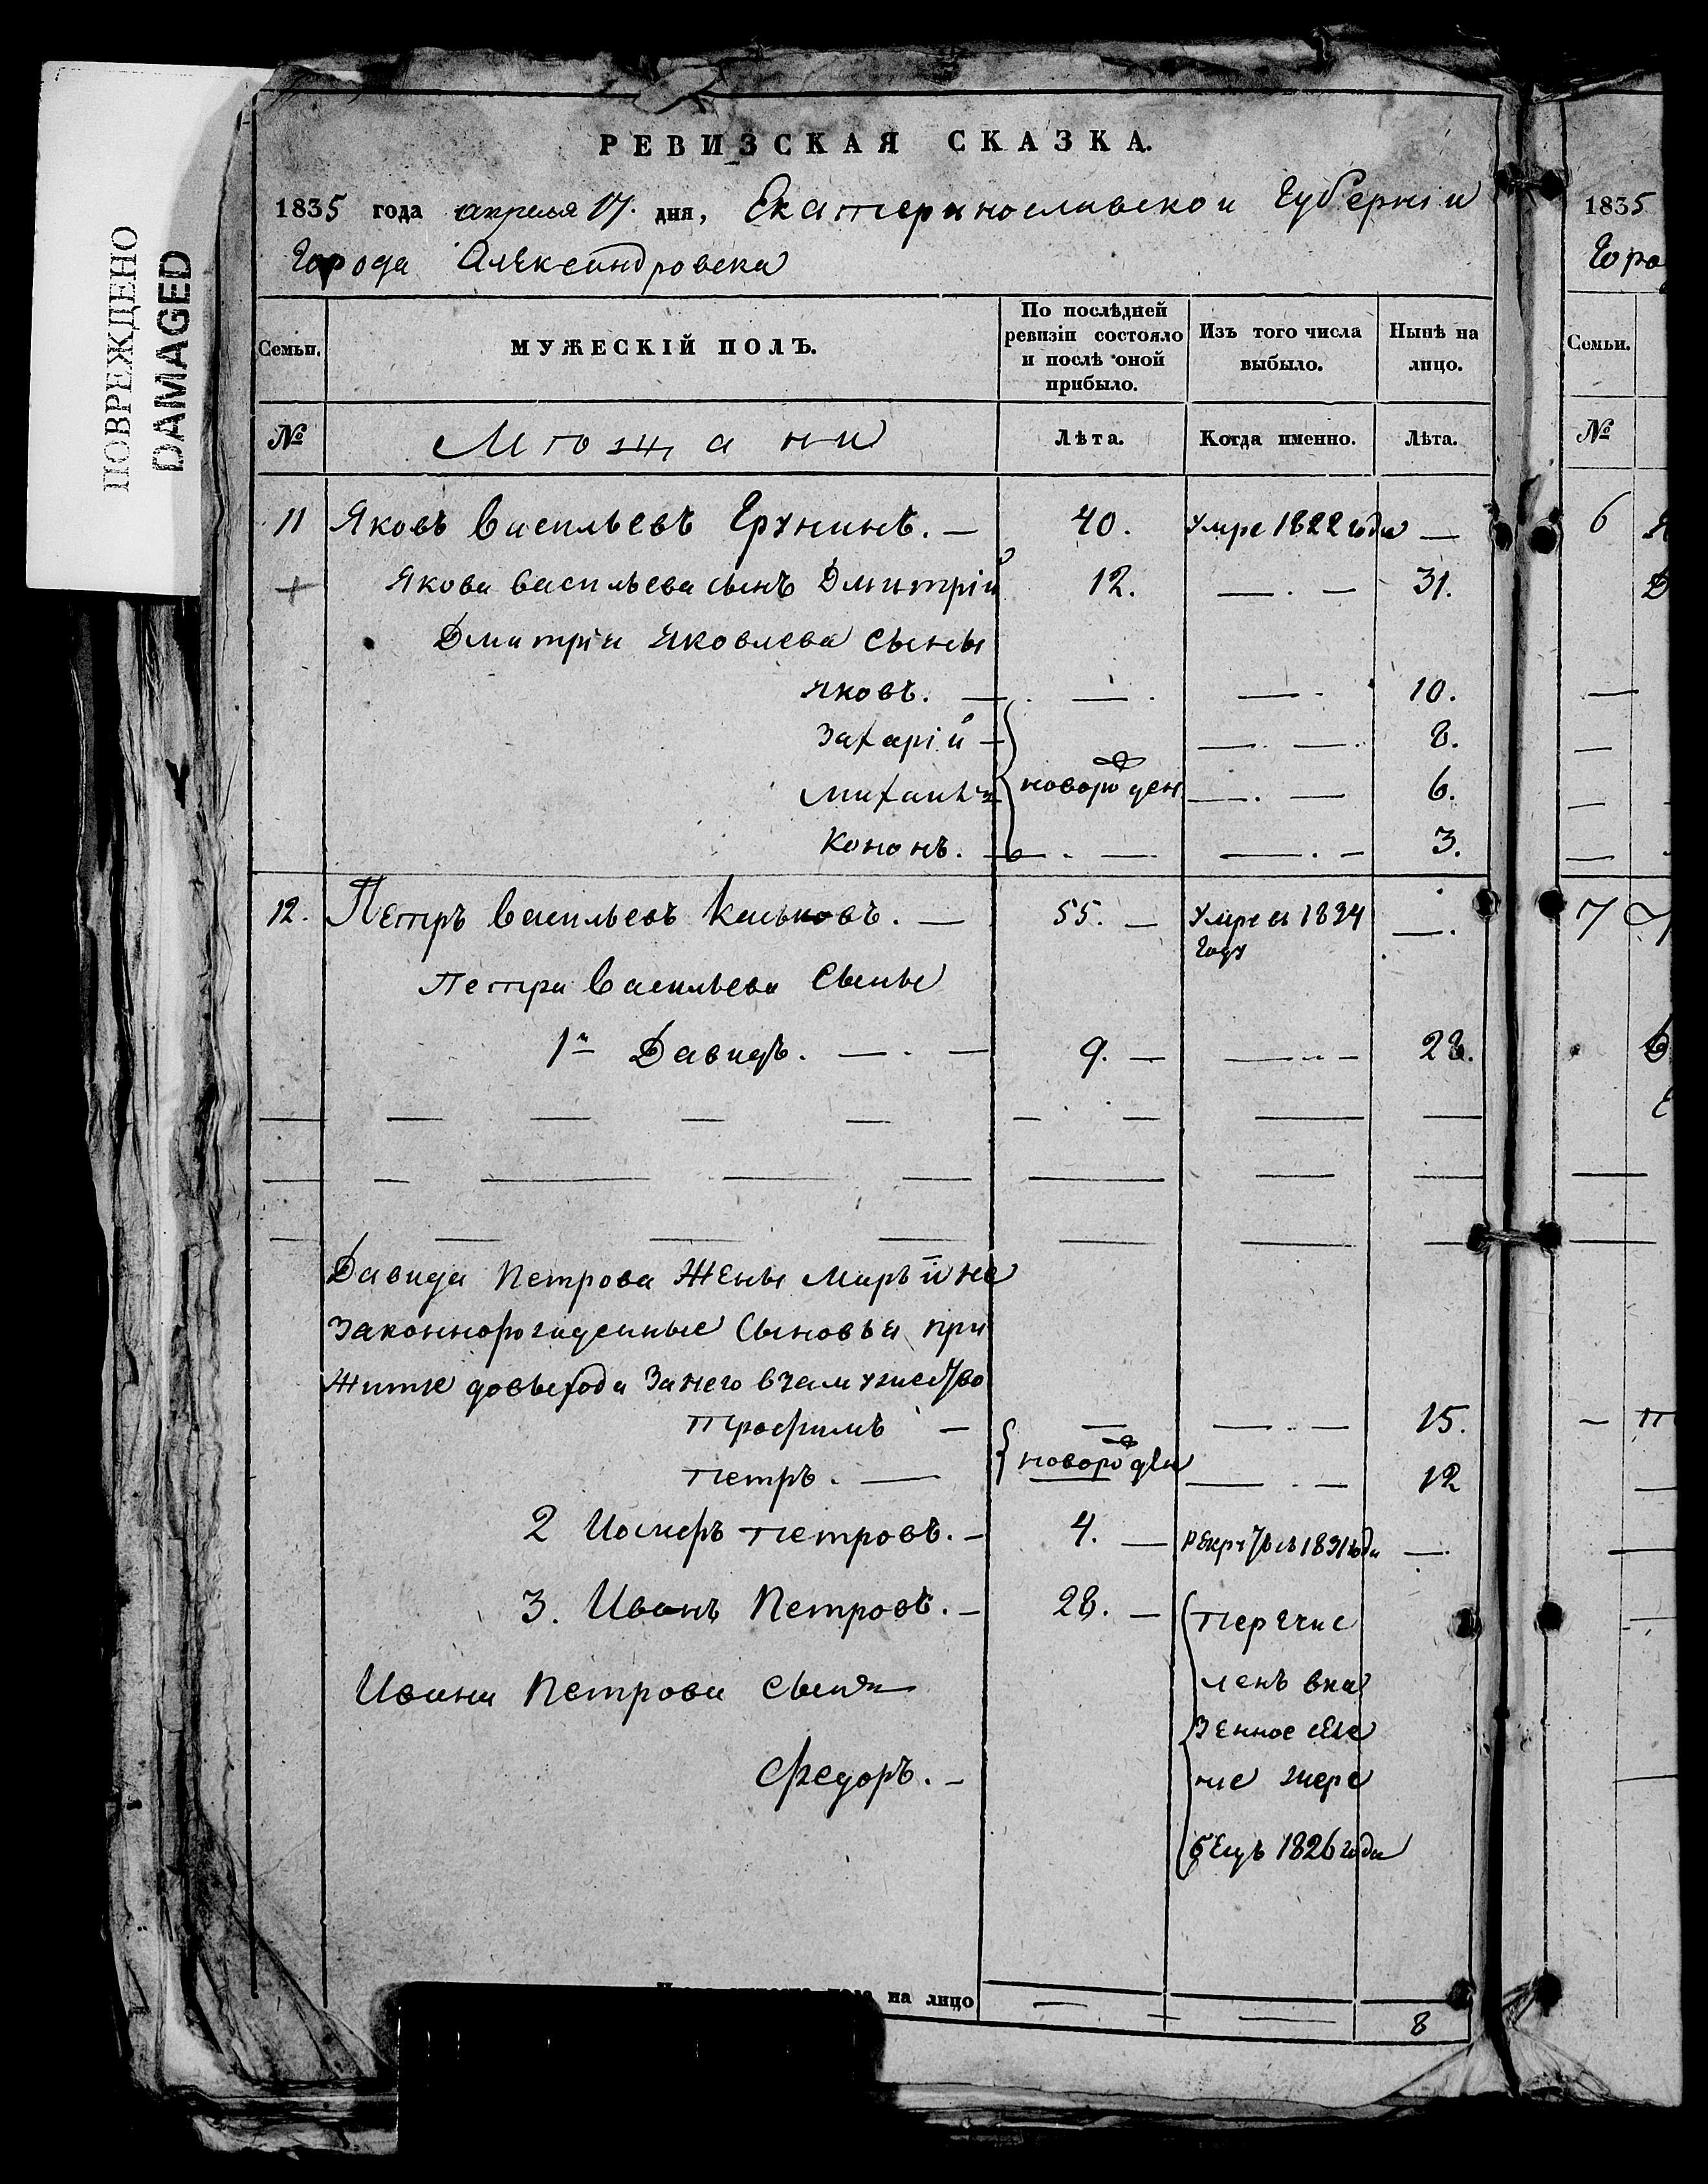 ПОВРЕЖДЕНО
DAMAGED
РЕВИЗСКАЯ СКАЗКА.
1835 года апреля 17. дня, Екатеринославской Губернии
Города Александровска
Семьи.
МУЖЕСКІЙ ПОЛЪ.
По послѣдней ревизіи состояло и послѣ оной прибыло.
Изъ того числа выбыло.
Нынѣ на лицо.
№ Мѣщани Лѣта. Когда именно. Лѣта.
11 Яковъ Васильевъ Ерунинъ. — 40. умре 1822 года —
Якова Васильева сынъ Дмитрій 12. — . — 31.
Дмитрія Яковлева сыны
Яковъ. — — — 10.
Захарій — — . — 8.
Михаилъ новорожден — . — 6.
Кононъ. — — . — — . — 3.
12. Петръ Васильевъ Каськовъ. — 55. — Умре въ 1834 году — .
Петра Васильева сыны
1й Давидъ. — . — 9. — — 28.
Давида Петрова жены Марьи не
законнорожденные сыновья при
житые до выхода за него в замужество
Трофимъ — — — . — 15.
Петръ. — новорожден — . — 12
2 Иосифъ Петровъ. — 4. — рекрутъ съ 1831 года — .
3. Иванъ Петровъ. — 28. — Перечис
ленъ в ка
Ивана Петрова сынъ
зенное селе
Федоръ. — ние жере
бецъ 1826 года
на лицо — — 8
1835
Горо
Семьи.
№
6
7